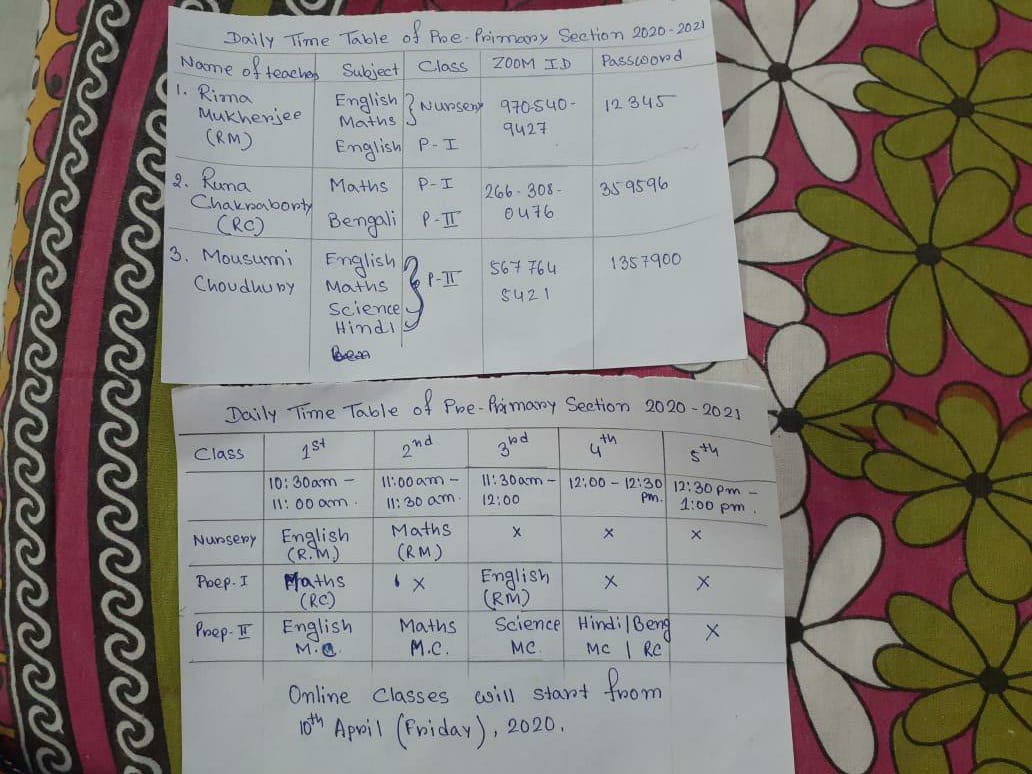 Daily Time Table of Pre-Primary Section 2020-2021
Name of teacher Subject Class ZOOM ID Password
1. Rima Mukherjee (RM) English Maths } Nursery 970-540-9427 12345
English P-I
2. Runa Chakraborty (RC) Maths P-I 266-308-0476 359596
Bengali P-II
3. Mousumi Choudhury English Maths Science Hindi } P-II 567 764 5421 1357900
Daily Time Table of Pre-Primary Section 2020-2021
Class 1st 2nd 3rd 4th 5th
10:30am - 11:00 am. 11:00am - 11:30 am. 11:30am - 12:00 12:00 - 12:30 pm. 12:30 pm - 1:00 pm.
Nursery English (R.M.) Maths (RM) x x x
Prep. I Maths (RC) x English (RM) x x
Prep- II English M.C. Maths M.C. Science MC. Hindi|Beng MC | RC x
Online Classes will start from
10th April (Friday), 2020.